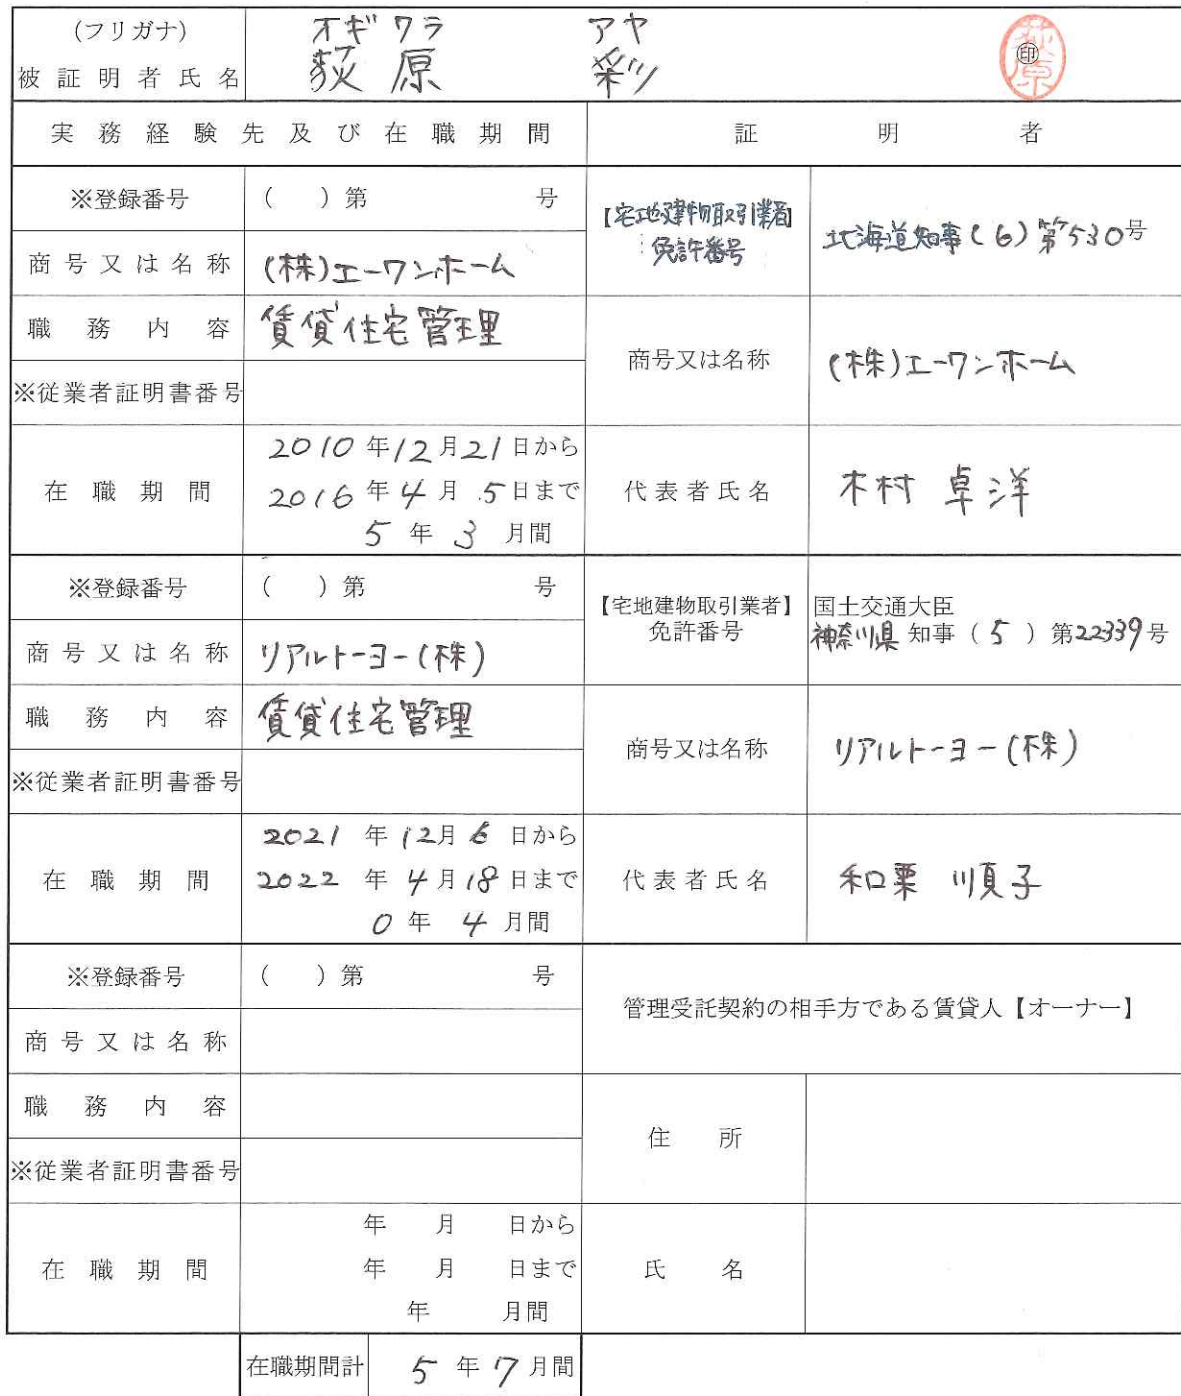 (フリガナ) オギワラ アヤ
被証明者氏名 荻原 彩 ㊞ 荻原
実務経験先及び在職期間 証明者
※登録番号 ( )第 号
【宅地建物取引業者】
免許番号
北海道知事(6)第530号
商号又は名称 (株)エーワンホーム
職務内容 賃貸住宅管理
※従業者証明書番号
商号又は名称 (株)エーワンホーム
在職期間
2010年12月21日から
2016年4月5日まで
5年3月間
代表者氏名 木村 卓洋
※登録番号 ( )第 号
【宅地建物取引業者】
免許番号
国土交通大臣
神奈川県知事(5)第22339号
商号又は名称 リアルトーヨー(株)
職務内容 賃貸住宅管理
※従業者証明書番号
商号又は名称 リアルトーヨー(株)
在職期間
2021年12月6日から
2022年4月18日まで
0年4月間
代表者氏名 和栗 順子
※登録番号 ( )第 号
管理受託契約の相手方である賃貸人【オーナー】
商号又は名称
職務内容
※従業者証明書番号
住所
在職期間
年 月 日から
年 月 日まで
年 月間
氏名
在職期間計 5年7月間